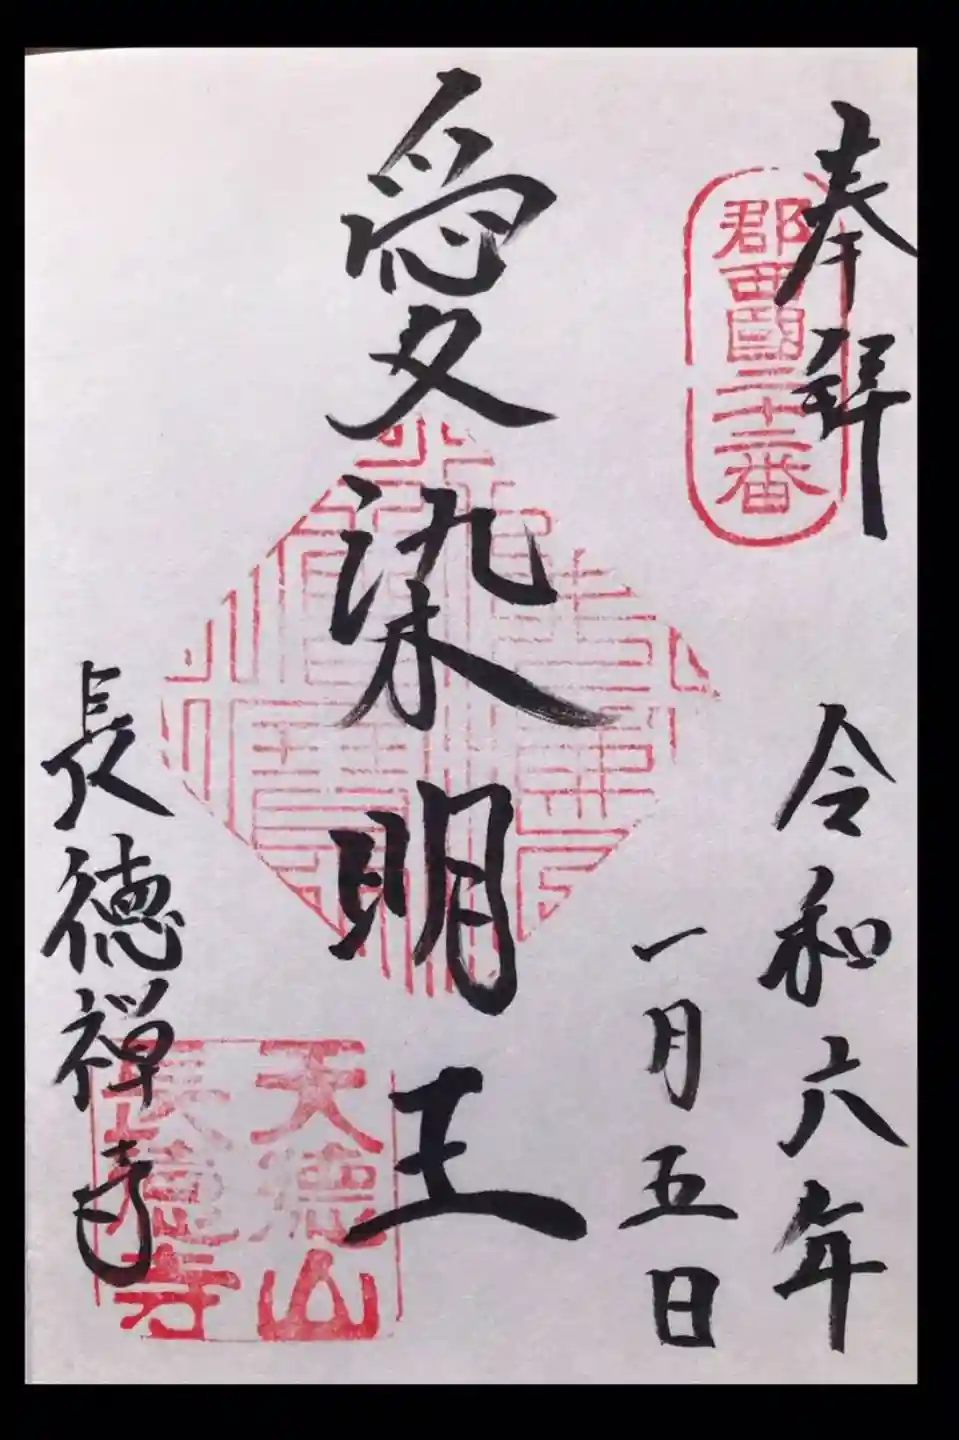 奉拝
郡西國三十三番
令和六年
一月五日
愛染明王
長徳禅寺
天徳山
長徳寺